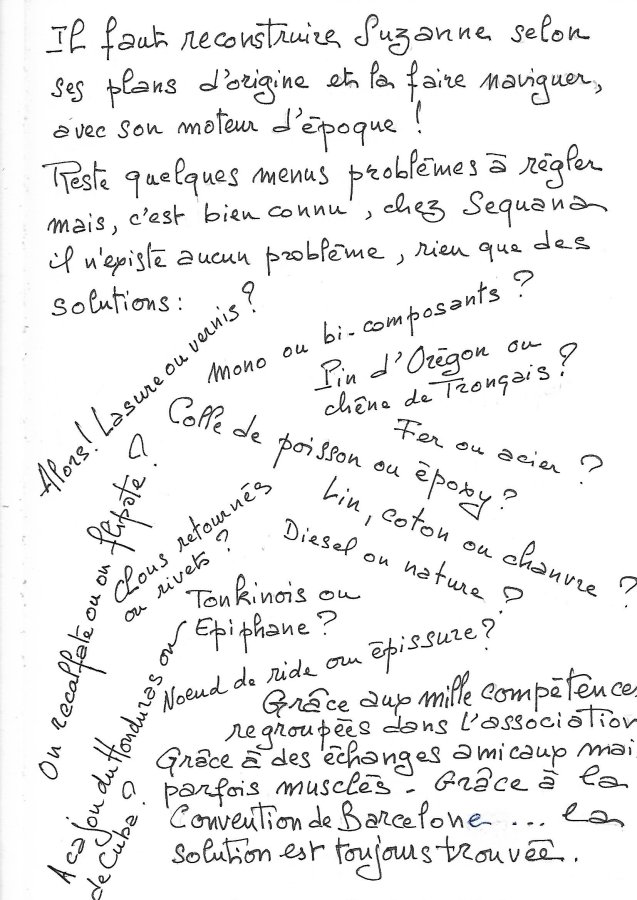 Il faut reconstruire Suzanne selon
ses plans d'origine et la faire naviguer,
avec son moteur d'époque !
Reste quelques menus problèmes à régler
mais, c'est bien connu, chez Sequana
il n'existe aucun problème, rien que des
solutions :
Alors! Lasure ou vernis ?
Mono ou bi-composants ?
Pin d'Orégon ou
chêne de Tronçais ?
Colle de poisson ou époxy ?
Fer ou acier ?
Lin, coton ou chanvre ?
Diesel ou nature ?
On recalfate ou on flipote ?
Clous retournés
ou rivets ?
Tonkinois ou
Epiphane ?
Noeud de ride ou épissure ?
Acajou du Honduras ou
de Cuba ?
Grâce aux mille compétences
regroupées dans l'association
Grâce à des échanges amicaux mai
parfois musclés - Grâce à la
Convention de Barcelone ... la
solution est toujours trouvée.